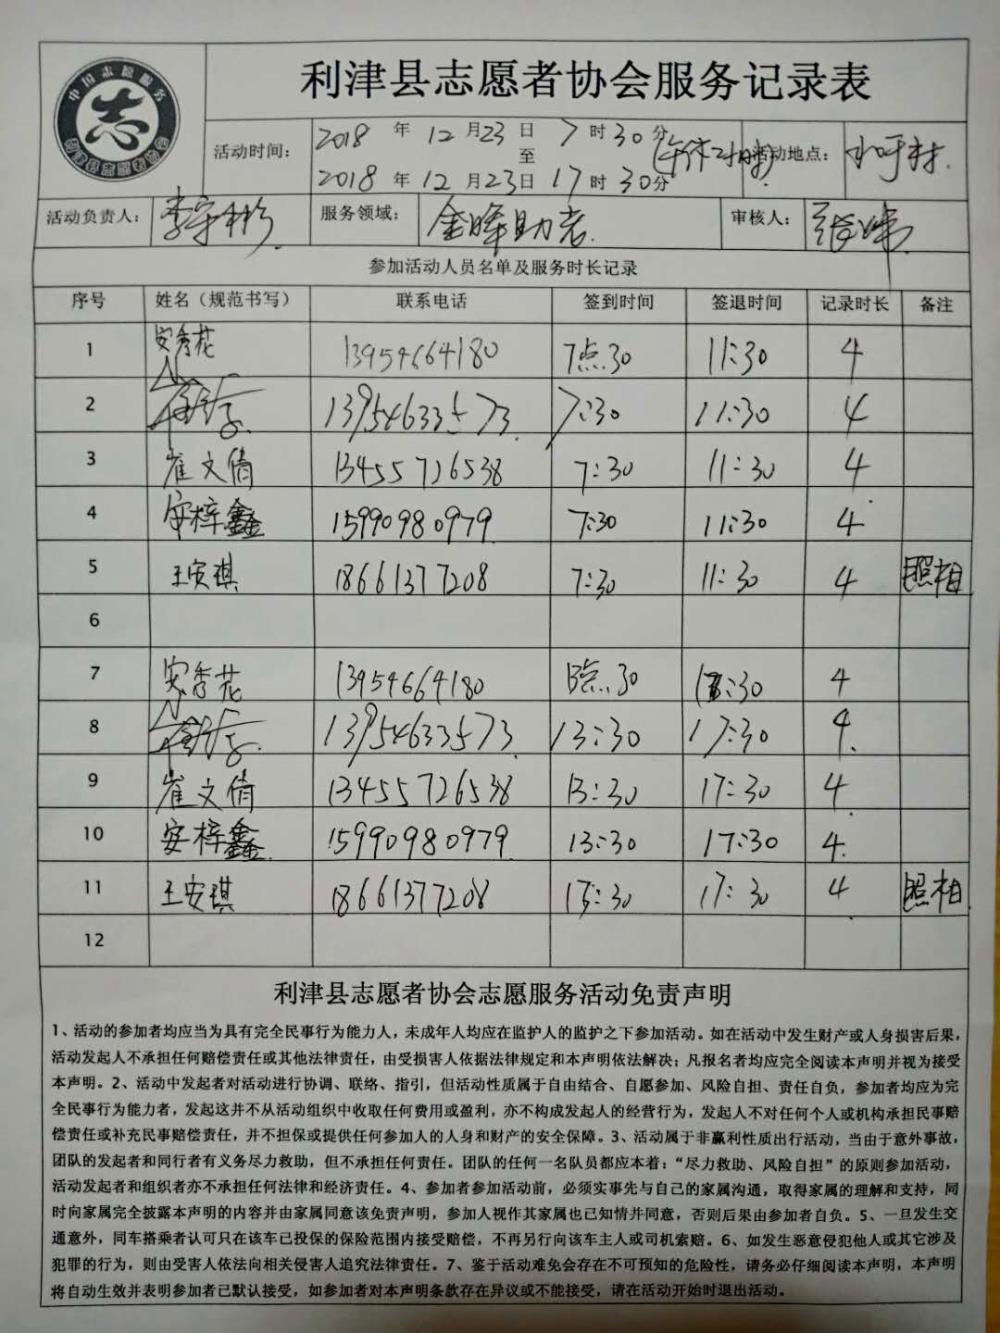 中国志愿服务
志
利津县志愿者协会服务记录表
活动时间： 2018 年 12 月 23 日 7 时 30 分
至 (午休2小时) 活动地点：
2018 年 12 月 23 日 17 时 30 分
活动负责人： 李宗彬 服务领域： 金晖助老 审核人：
参加活动人员名单及服务时长记录
序号 姓名（规范书写） 联系电话 签到时间 签退时间 记录时长 备注
1 安秀花 13954664180 7点.30 11:30 4
2 13954633573 7:30 11:30 4
3 崔文倩 13455726538 7:30 11:30 4
4 安梓鑫 15990980979 7:30 11:30 4
5 王安琪 18661377208 7:30 11:30 4 照相
6
7 安秀花 13954664180 13点.30 17:30 4
8 13954633573 13:30 17:30 4.
9 崔文倩 13455726538 13:30 17:30 4
10 安梓鑫 15990980979 13:30 17:30 4.
11 王安琪 18661377208 13:30 17:30 4 照相
12
利津县志愿者协会志愿服务活动免责声明
1、活动的参加者均应当为具有完全民事行为能力人，未成年人均应在监护人的监护之下参加活动。如在活动中发生财产或人身损害后果，
活动发起人不承担任何赔偿责任或其他法律责任，由受损害人依据法律规定和本声明依法解决；凡报名者均应完全阅读本声明并视为接受
本声明。2、活动中发起者对活动进行协调、联络、指引，但活动性质属于自由结合、自愿参加、风险自担、责任自负，参加者均应为完
全民事行为能力者，发起这并不从活动组织中收取任何费用或盈利，亦不构成发起人的经营行为，发起人不对任何个人或机构承担民事赔
偿责任或补充民事赔偿责任，并不担保或提供任何参加人的人身和财产的安全保障。3、活动属于非赢利性质出行活动，当由于意外事故，
团队的发起者和同行者有义务尽力救助，但不承担任何责任。团队的任何一名队员都应本着：“尽力救助、风险自担”的原则参加活动，
活动发起者和组织者亦不承担任何法律和经济责任。4、参加者参加活动前，必须实事先与自己的家属沟通，取得家属的理解和支持，同
时向家属完全披露本声明的内容并由家属同意该免责声明，参加人视作其家属也已知情并同意，否则后果由参加者自负。5、一旦发生交
通意外，同车搭乘者认可只在该车已投保的保险范围内接受赔偿，不再另行向该车主人或司机索赔。6、如发生恶意侵犯他人或其它涉及
犯罪的行为，则由受害人依法向相关侵害人追究法律责任。7、鉴于活动难免会存在不可预知的危险性，请务必仔细阅读本声明，本声明
将自动生效并表明参加者已默认接受，如参加者对本声明条款存在异议或不能接受，请在活动开始时退出活动。